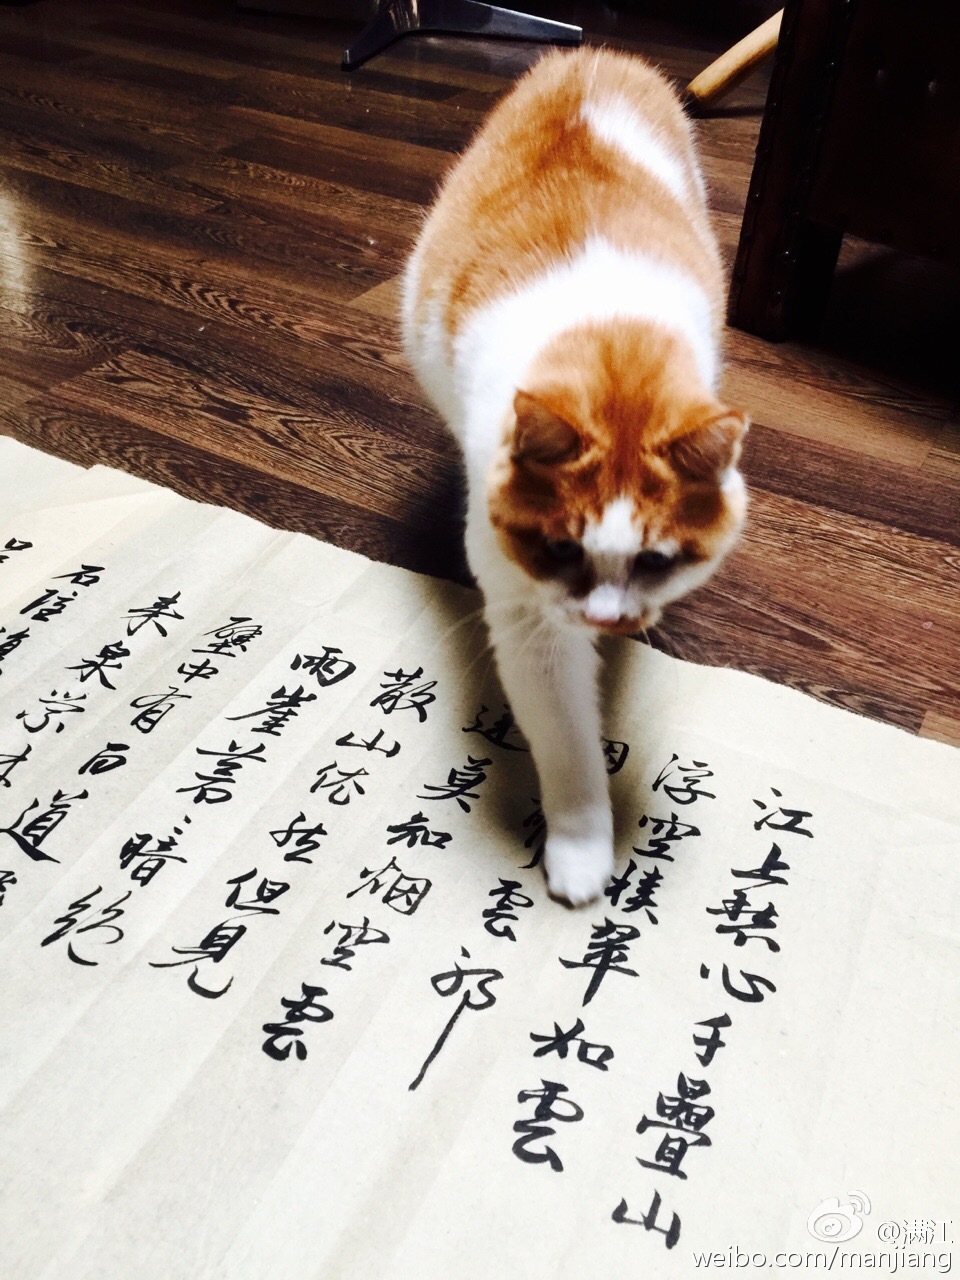 江上愁心手疊山
浮空積翠如雲
烟雲邪
遠莫知烟空雲
散山依然但見
兩崖蒼々暗絶
壁中有百道
来泉縈林
石隱復
@满江
weibo.com/manjiang